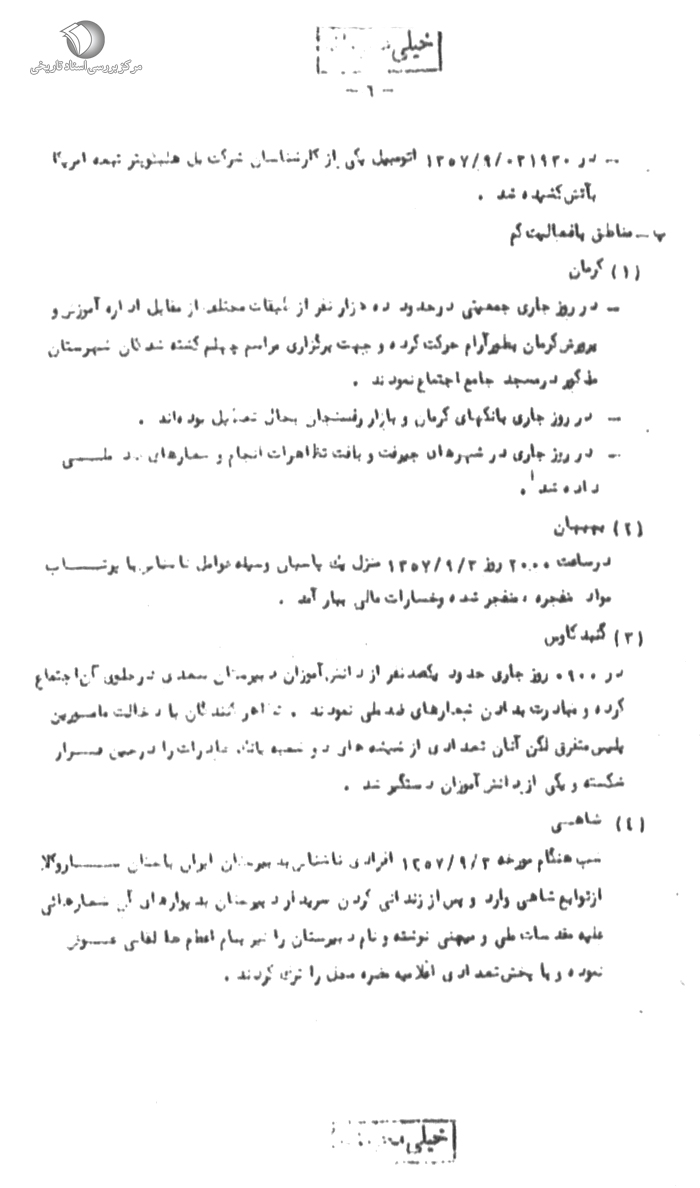 مرکز بررسی اسناد تاریخی
خیلی
- ٦ -
- در ٠٣١٩٣٠/٩/١٣٥٧ اتومبیل یکی از کارشناسان شرکت بل هلیکوپتر تبعه امریکا
بآتش کشیده شد .
ب - مناطق بافعالیت کم
(١) کرمان
- در روز جاری جمعیتی در حدود ده هزار نفر از طبقات مختلف از مقابل اداره آموزش و
پرورش کرمان بطور آرام حرکت کرده و جهت برگزاری مراسم چهلم کشته شدگان شهرستان
مذکور در مسجد جامع اجتماع نمودند .
- در روز جاری بانکهای کرمان و بازار رفسنجان بحال تعطیل بوده‌اند .
- در روز جاری در شهرهای جیرفت و بافت تظاهرات انجام و شعارهای ضد ملی
داده شد .
(٢) بهبهان
در ساعت ٢٠٠٠ روز ١٣٥٧/٩/٣ منزل یک پاسبان وسیله عوامل ناشناس با پرتاب
مواد منفجره ، منفجر شده و خسارات مالی ببار آمد .
(٣) گنبد کاوس
در ٠٩٠٠ روز جاری حدود یکصد نفر از دانش آموزان دبیرستان سعدی در جلوی آن اجتماع
کرده و مبادرت بدادن شعارهای ضد ملی نمودند . تظاهر کنندگان با دخالت مامورین
پلیس متفرق لکن آنان تعدادی از شیشه های دو شعبه بانک صادرات را در حین فرار
شکسته و یکی از دانش آموزان دستگیر شد .
(٤) شاهی
شب هنگام مورخه ١٣٥٧/٩/٣ افرادی ناشناس به دبیرستان ایران باستان ساروکلا
از توابع شاهی وارد و پس از زندانی کردن سریدار دبیرستان بدیوارهای آن شعارهائی
علیه مقدسات ملی و میهنی نوشته و نام دبیرستان را نیز بنام اعظم طالقانی عوض
نموده و با پخش تعدادی اعلامیه مضره محل را ترک کردند .
خیلی